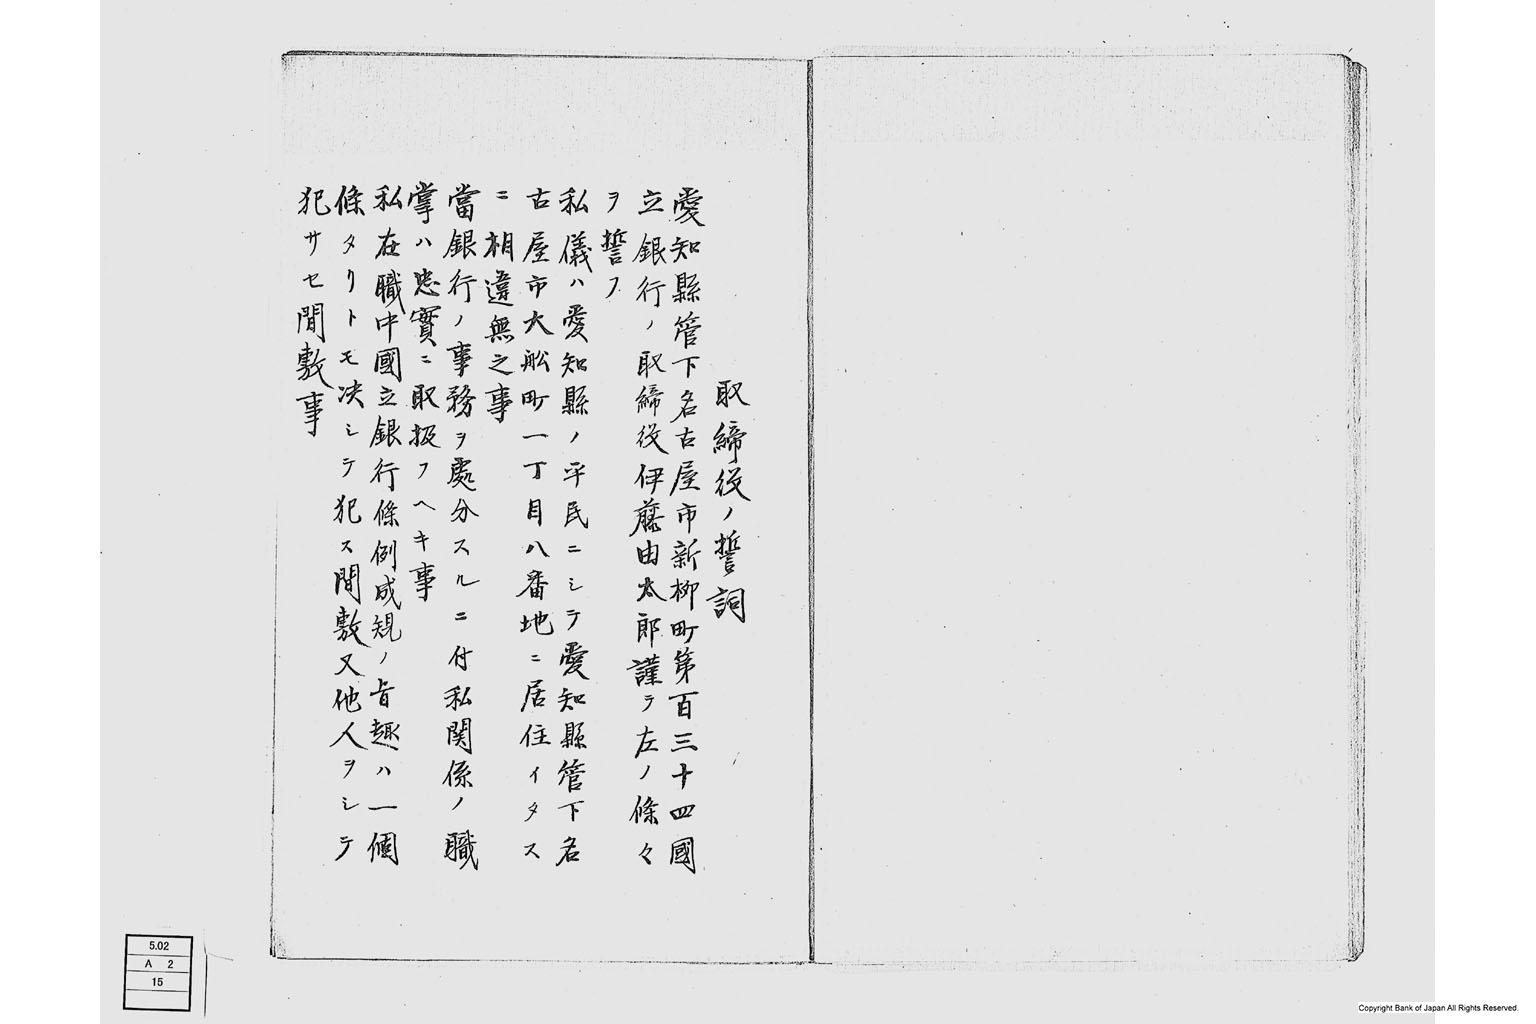 取締役ノ誓詞
愛知縣管下名古屋市新柳町第百三十四國
立銀行ノ取締役伊藤由太郎謹テ左ノ條々
ヲ誓フ
私儀ハ愛知縣ノ平民ニシテ愛知縣管下名
古屋市大舩町一丁目八番地ニ居住イタス
ニ相違無之事
當銀行ノ事務ヲ處分スルニ付私関係ノ職
掌ハ忠實ニ取扱フヘキ事
私在職中國立銀行條例成規ノ旨趣ハ一個
條タリトモ决シテ犯ス間敷又他人ヲシテ
犯サセ間敷事
5.02
A 2
15
Copyright Bank of Japan All Rights Reserved.